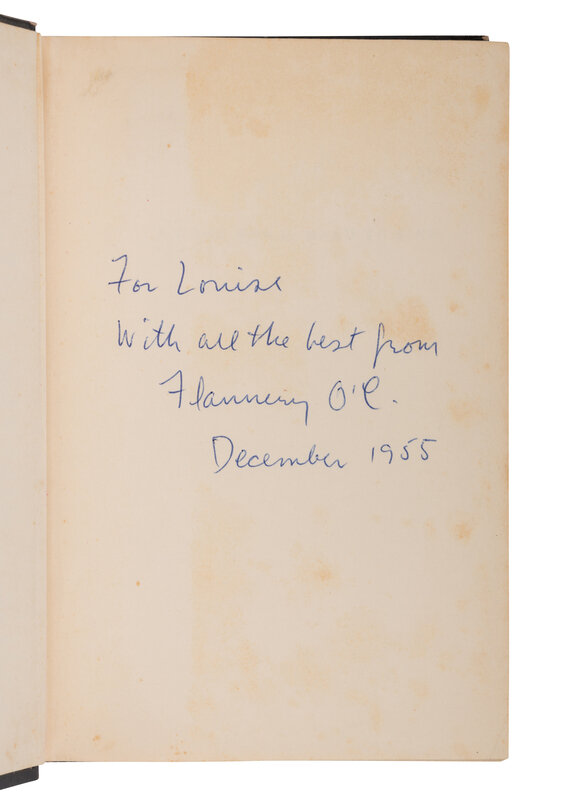 For Louise
With all the best from
Flannery O'C.
December 1955